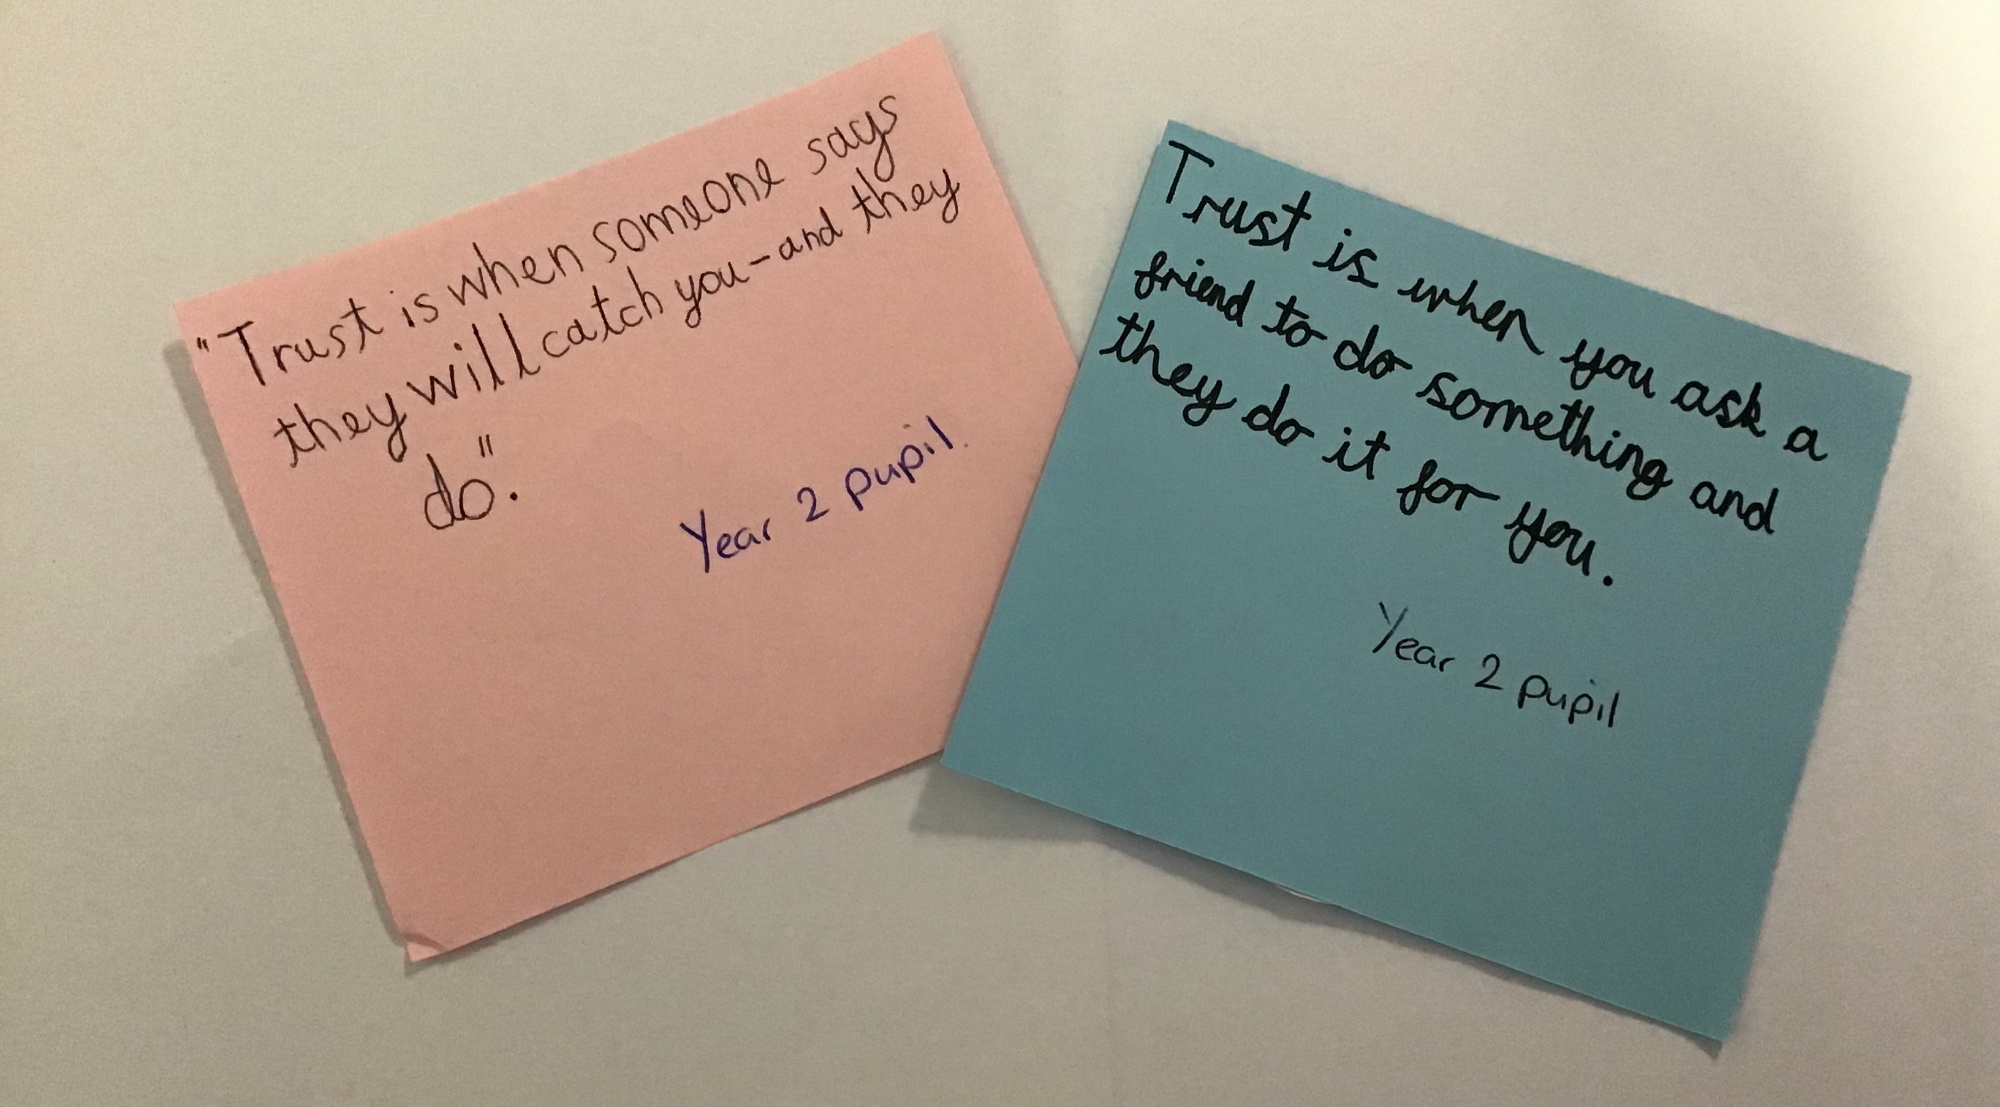 "Trust is when someone says
they will catch you - and they
do".
Year 2 pupil.
Trust is when you ask a
friend to do something and
they do it for you.
Year 2 pupil